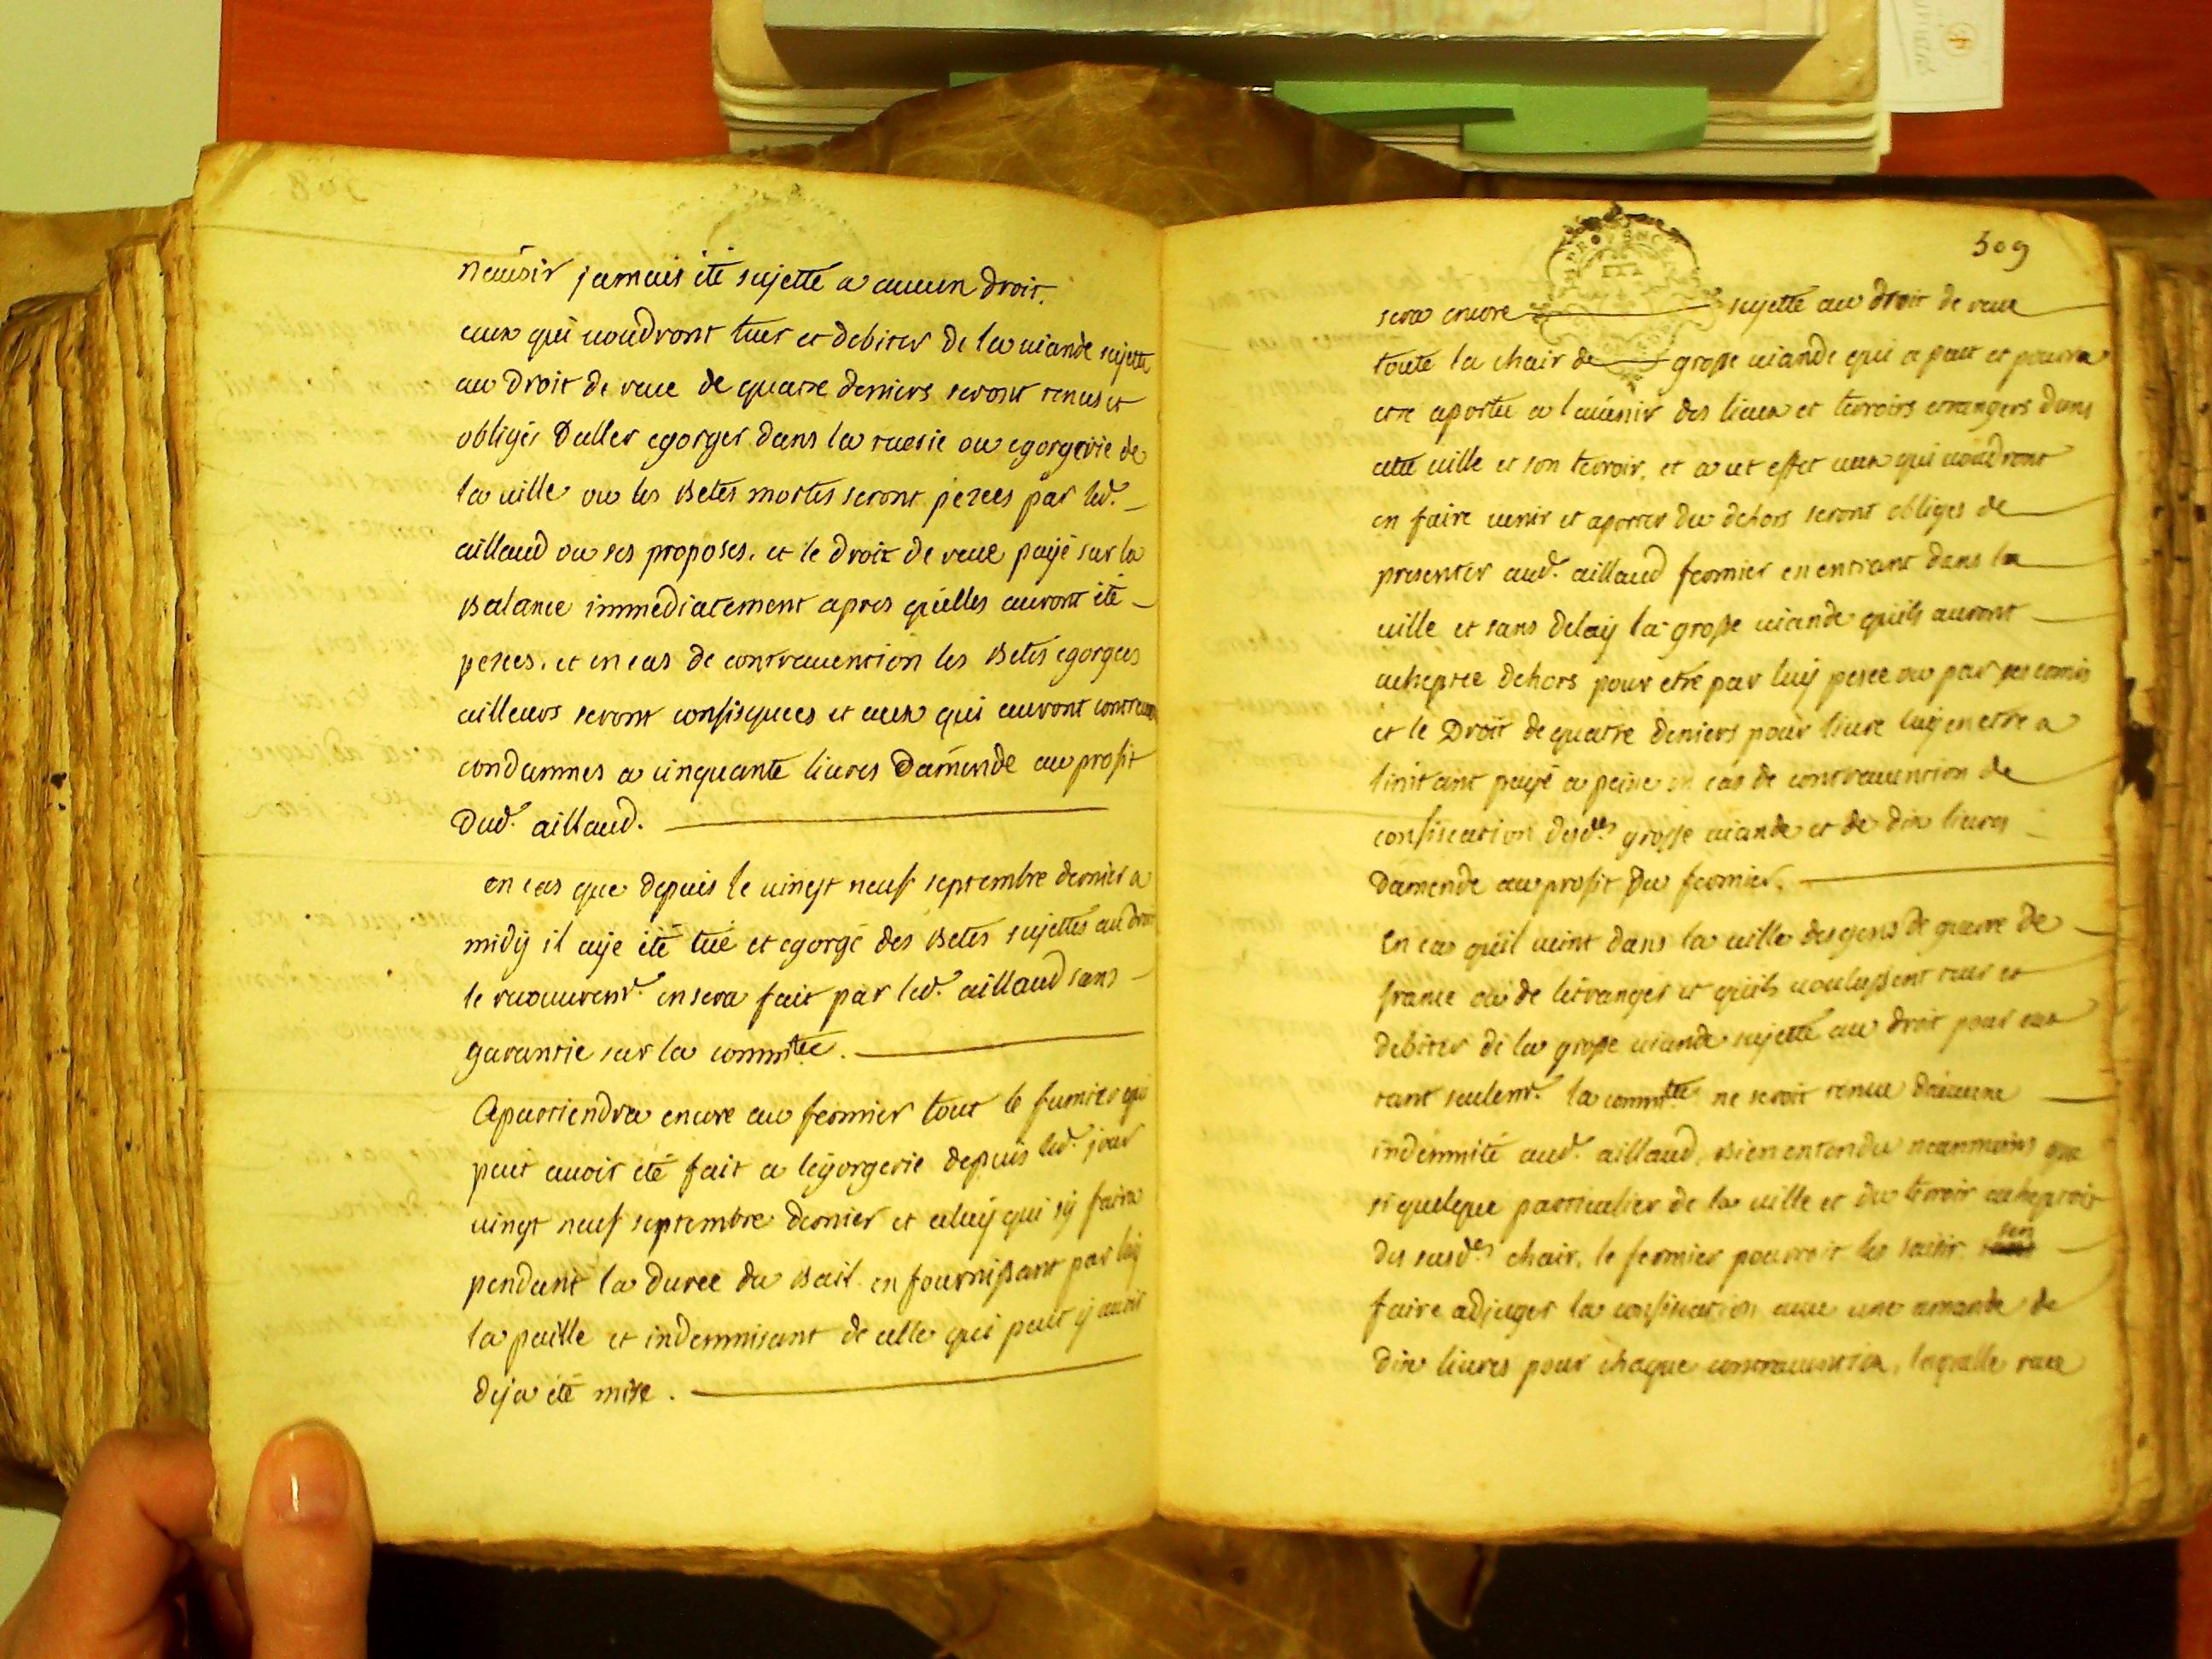 n'auoir jamais été sujette a aucun droit.
ceux qui uoudront tuer et debiter de la uiande sujette
au droit de reue de quatre deniers seront tenus et
obligés Daller egorger dans la tuerie ou egorgerie de
la uille ou les Betes mortes seront pezees par led.
aillaud ou ses proposés, et le droit de reue payé sur la
Balance immediatement apres quelles auront été
pezees, et en cas de contrauention les Betes egorgees
ailleurs seront confisquees et ceux qui auront contreuenu
condamnes a cinquante liures Damende au profit
Dud. aillaud.
en cas que depuis le uingt neuf septembre dernier a
midy il aye été tué et egorgé des Betes sujettes au droit
le recouurem.t en sera fait par led. aillaud sans
garantie sur la comm.té.
Apartiendra encore au fermier tout le fumier qui
peut auoir été fait a legorgerie depuis led. jour
uingt neuf septembre dernier et celuy qui sy faira
pendant la durée du Bail en fournissant par luy
la paille et indemnisant de celle qui peut y auoir
deja été mise.
509
PROVENCE
sera encore sujette au droit de reue
toute la chair de grosse uiande qui a peut et pourra
etre aportée a lauenir des lieux et terroirs etrangers dans
cette uille et son terroir, et a cet effet ceux qui uoudront
en faire uenir et aporter du dehors seront obliges de
presenter aud. aillaud fermier en entrant dans la
uille et sans delay la grosse uiande quils auront
acheptée dehors pour etre par luy pesée ou par ses comis
et le Droit de quatre deniers pour liure luy en etre a
linstant payé a peine en cas de contrauention de
confiscation desd.es grosse uiande et de dix liures
Damende au profit Du fermier.
En cas quil uint dans la uille des gens de guerre de
france ou de letranger et quils uoulussent tuer et
debiter de la grosse uiande sujette au droit pour eux
tant seulem.t la comm.té ne seroit tenue daucune
indemnité aud. aillaud, Bien entendu neanmoins que
si quelque particulier de la uille et du terroir acheptoit
des susd.es chair, le fermier pourroit les saisir en
faire adjuger la confiscation auec une amande de
dix liures pour chaque contrauention, laquelle reue